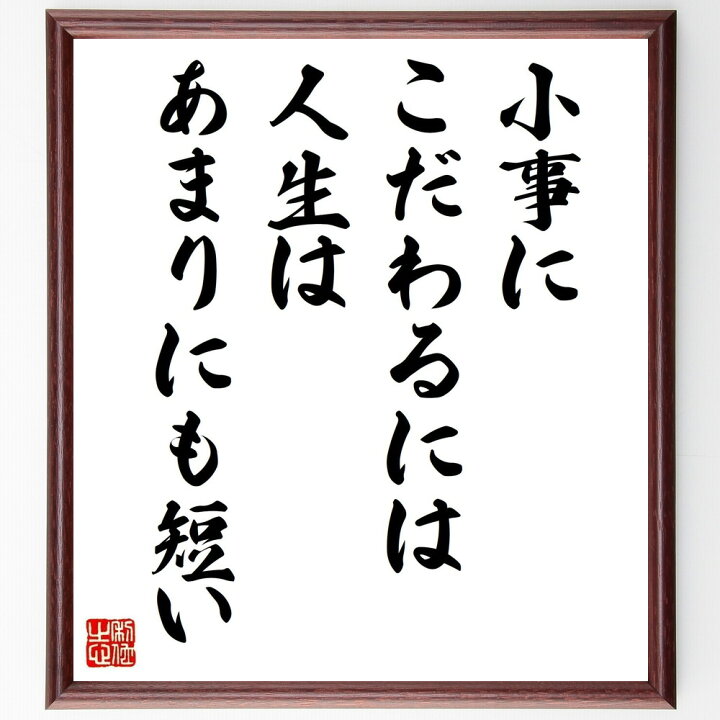 小事に
こだわるには
人生は
あまりにも短い